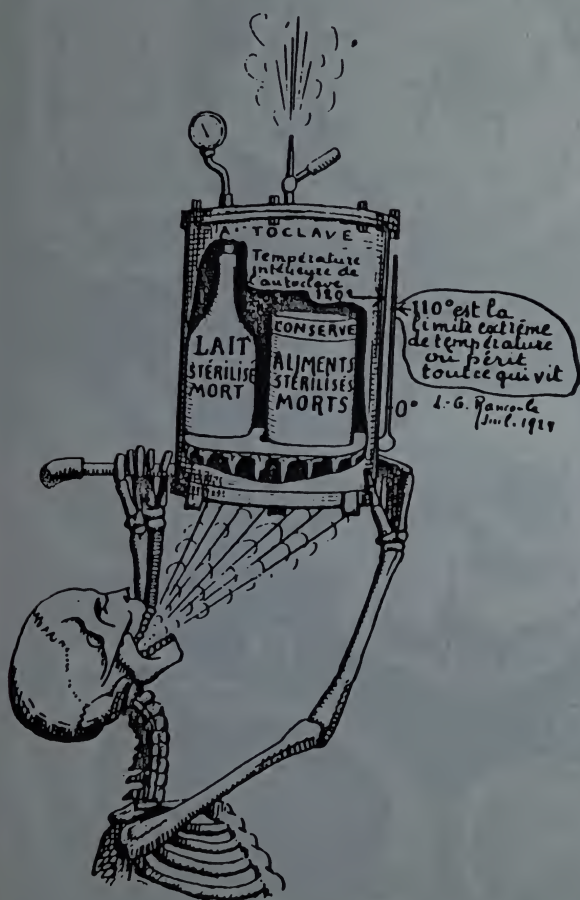 A TOCLAVE
Température
intérieure de
l'autoclave
120°
LAIT
STÉRILISÉ
MORT
CONSERVE
ALIMENTS
STÉRILISÉS
MORTS
110° est la
limite extrême
de température
où périt
tout ce qui vit
0°
L.-G. Rancoule
1927